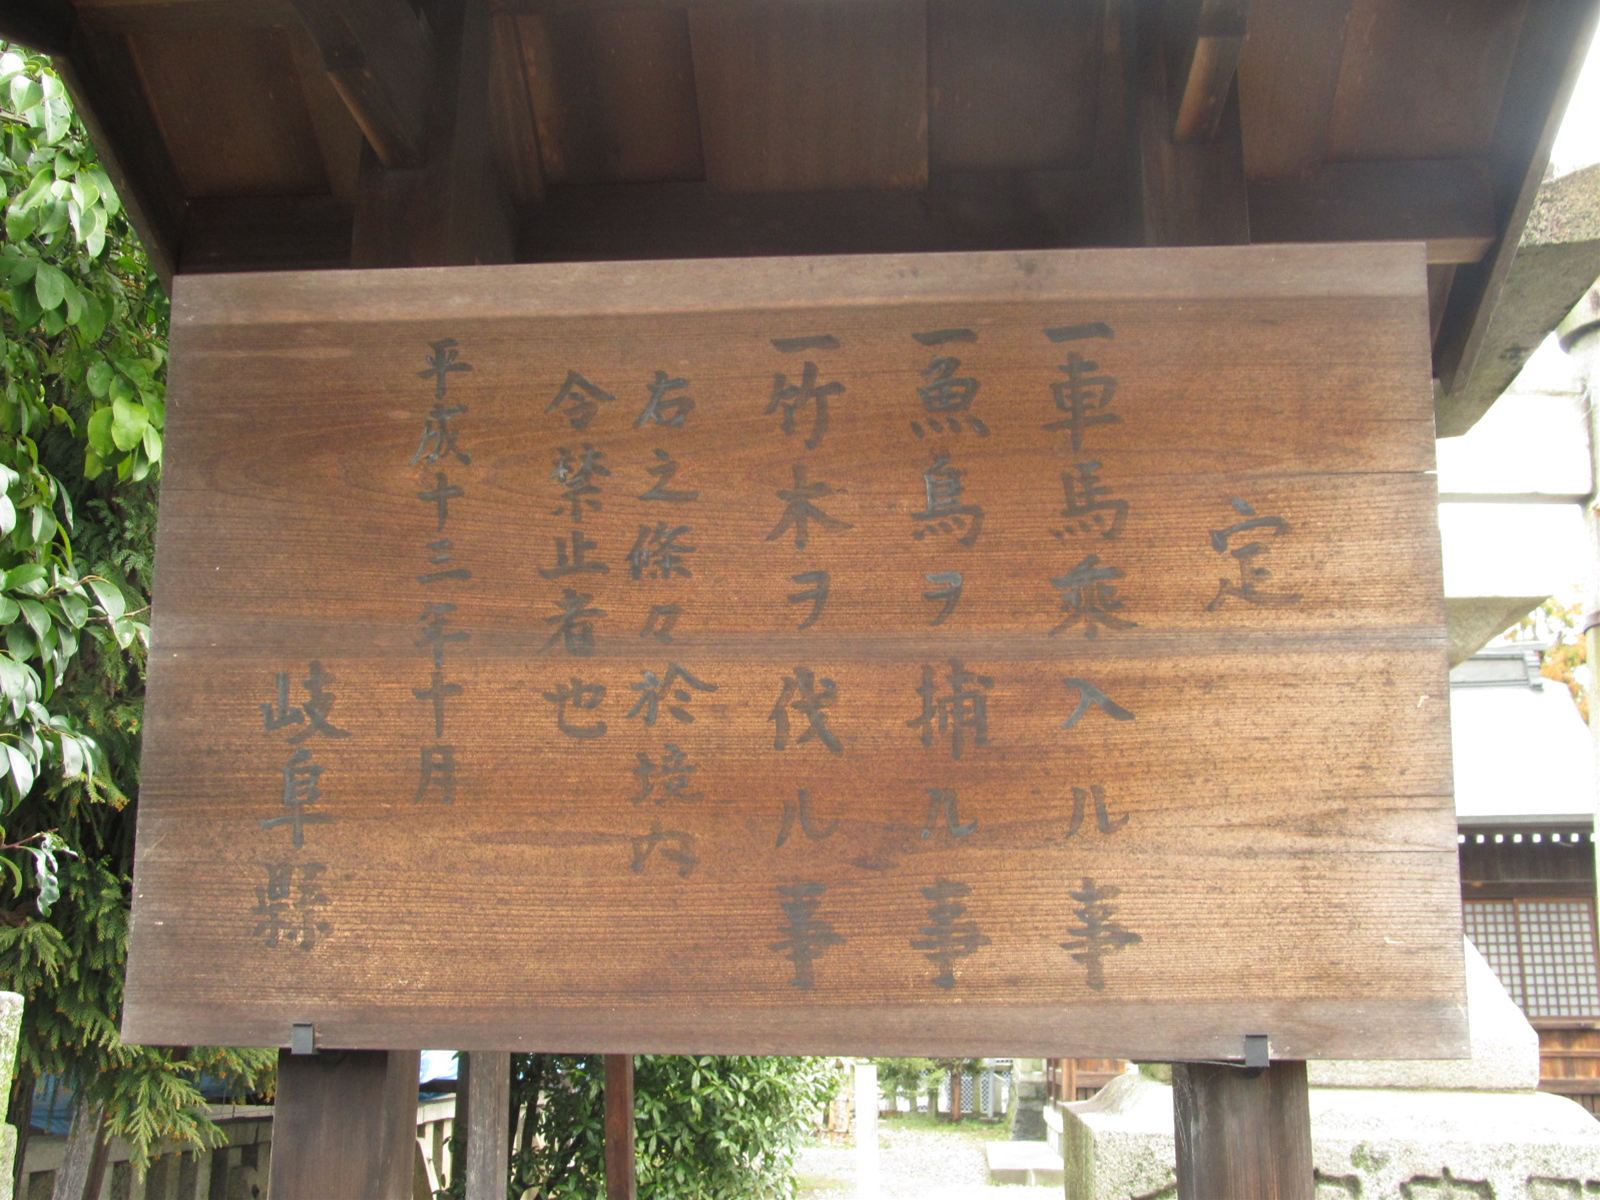 定
一車馬乘入ル事
一魚鳥ヲ捕ル事
一竹木ヲ伐ル事
右之條々於境内
令禁止者也
平成十三年十月
岐阜縣